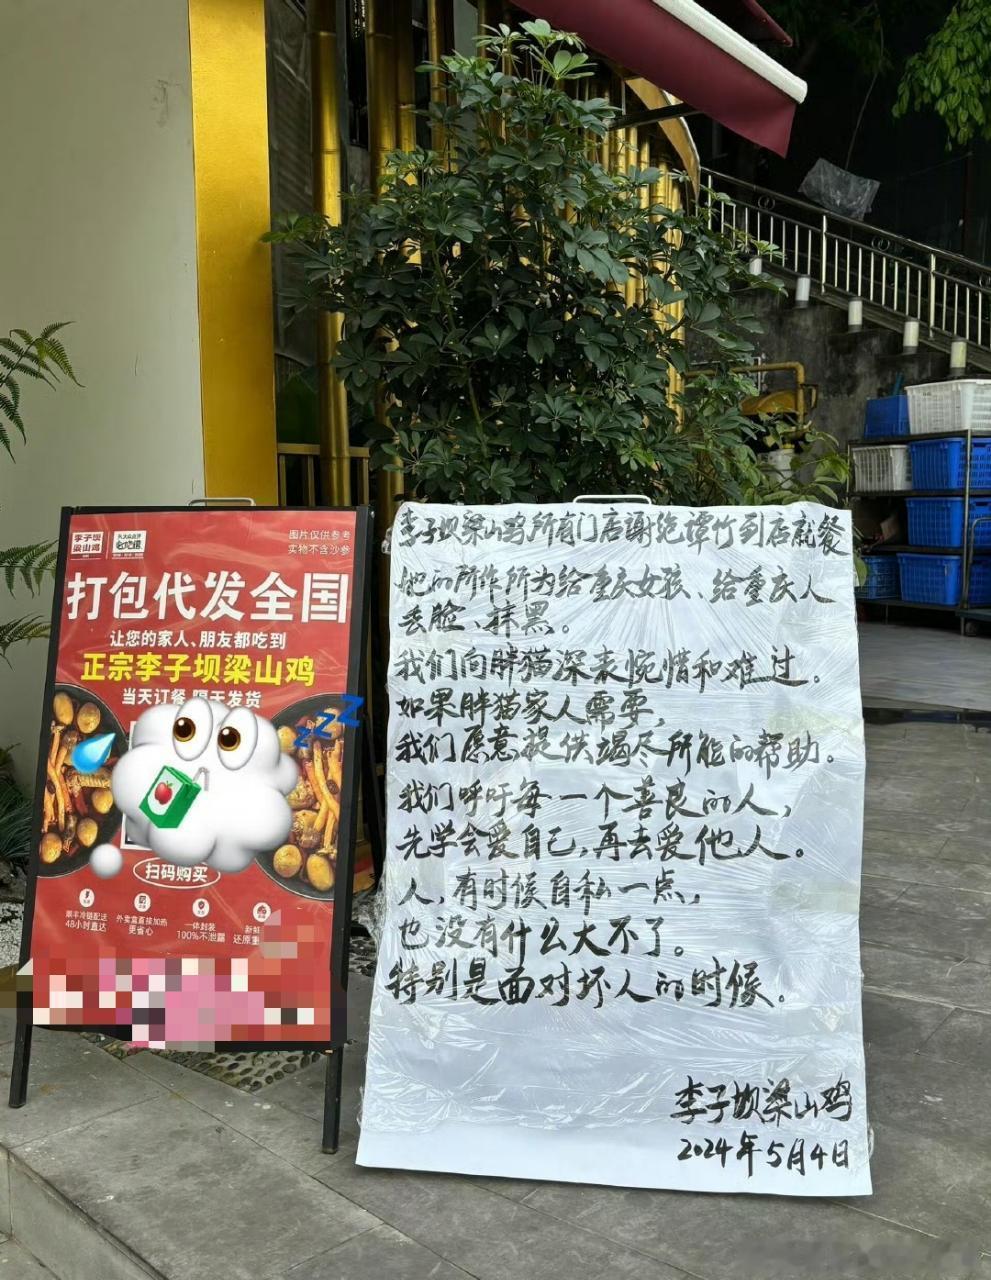 李子坝
梁山鸡
图片仅供参考
实物不含沙参
打包代发全国
让您的家人、朋友都吃到
正宗李子坝梁山鸡
当天订餐 隔天发货
扫码购买
顺丰冷链配送
48小时直达
外卖盒直接加热
更省心
一体封装
100%不泄漏
新鲜
还原重
李子坝梁山鸡所有门店謝绝谭竹到店就餐
她的所作所为给重庆女孩、给重庆人
丢脸、抹黑。
我们向胖猫深表惋惜和难过。
如果胖猫家人需要,
我们愿意提供竭尽所能的帮助。
我们呼吁每一个善良的人,
先学会爱自己,再去爱他人。
人,有时候自私一点,
也没有什么大不了。
特别是面对坏人的时候。
李子坝梁山鸡
2024年5月4日